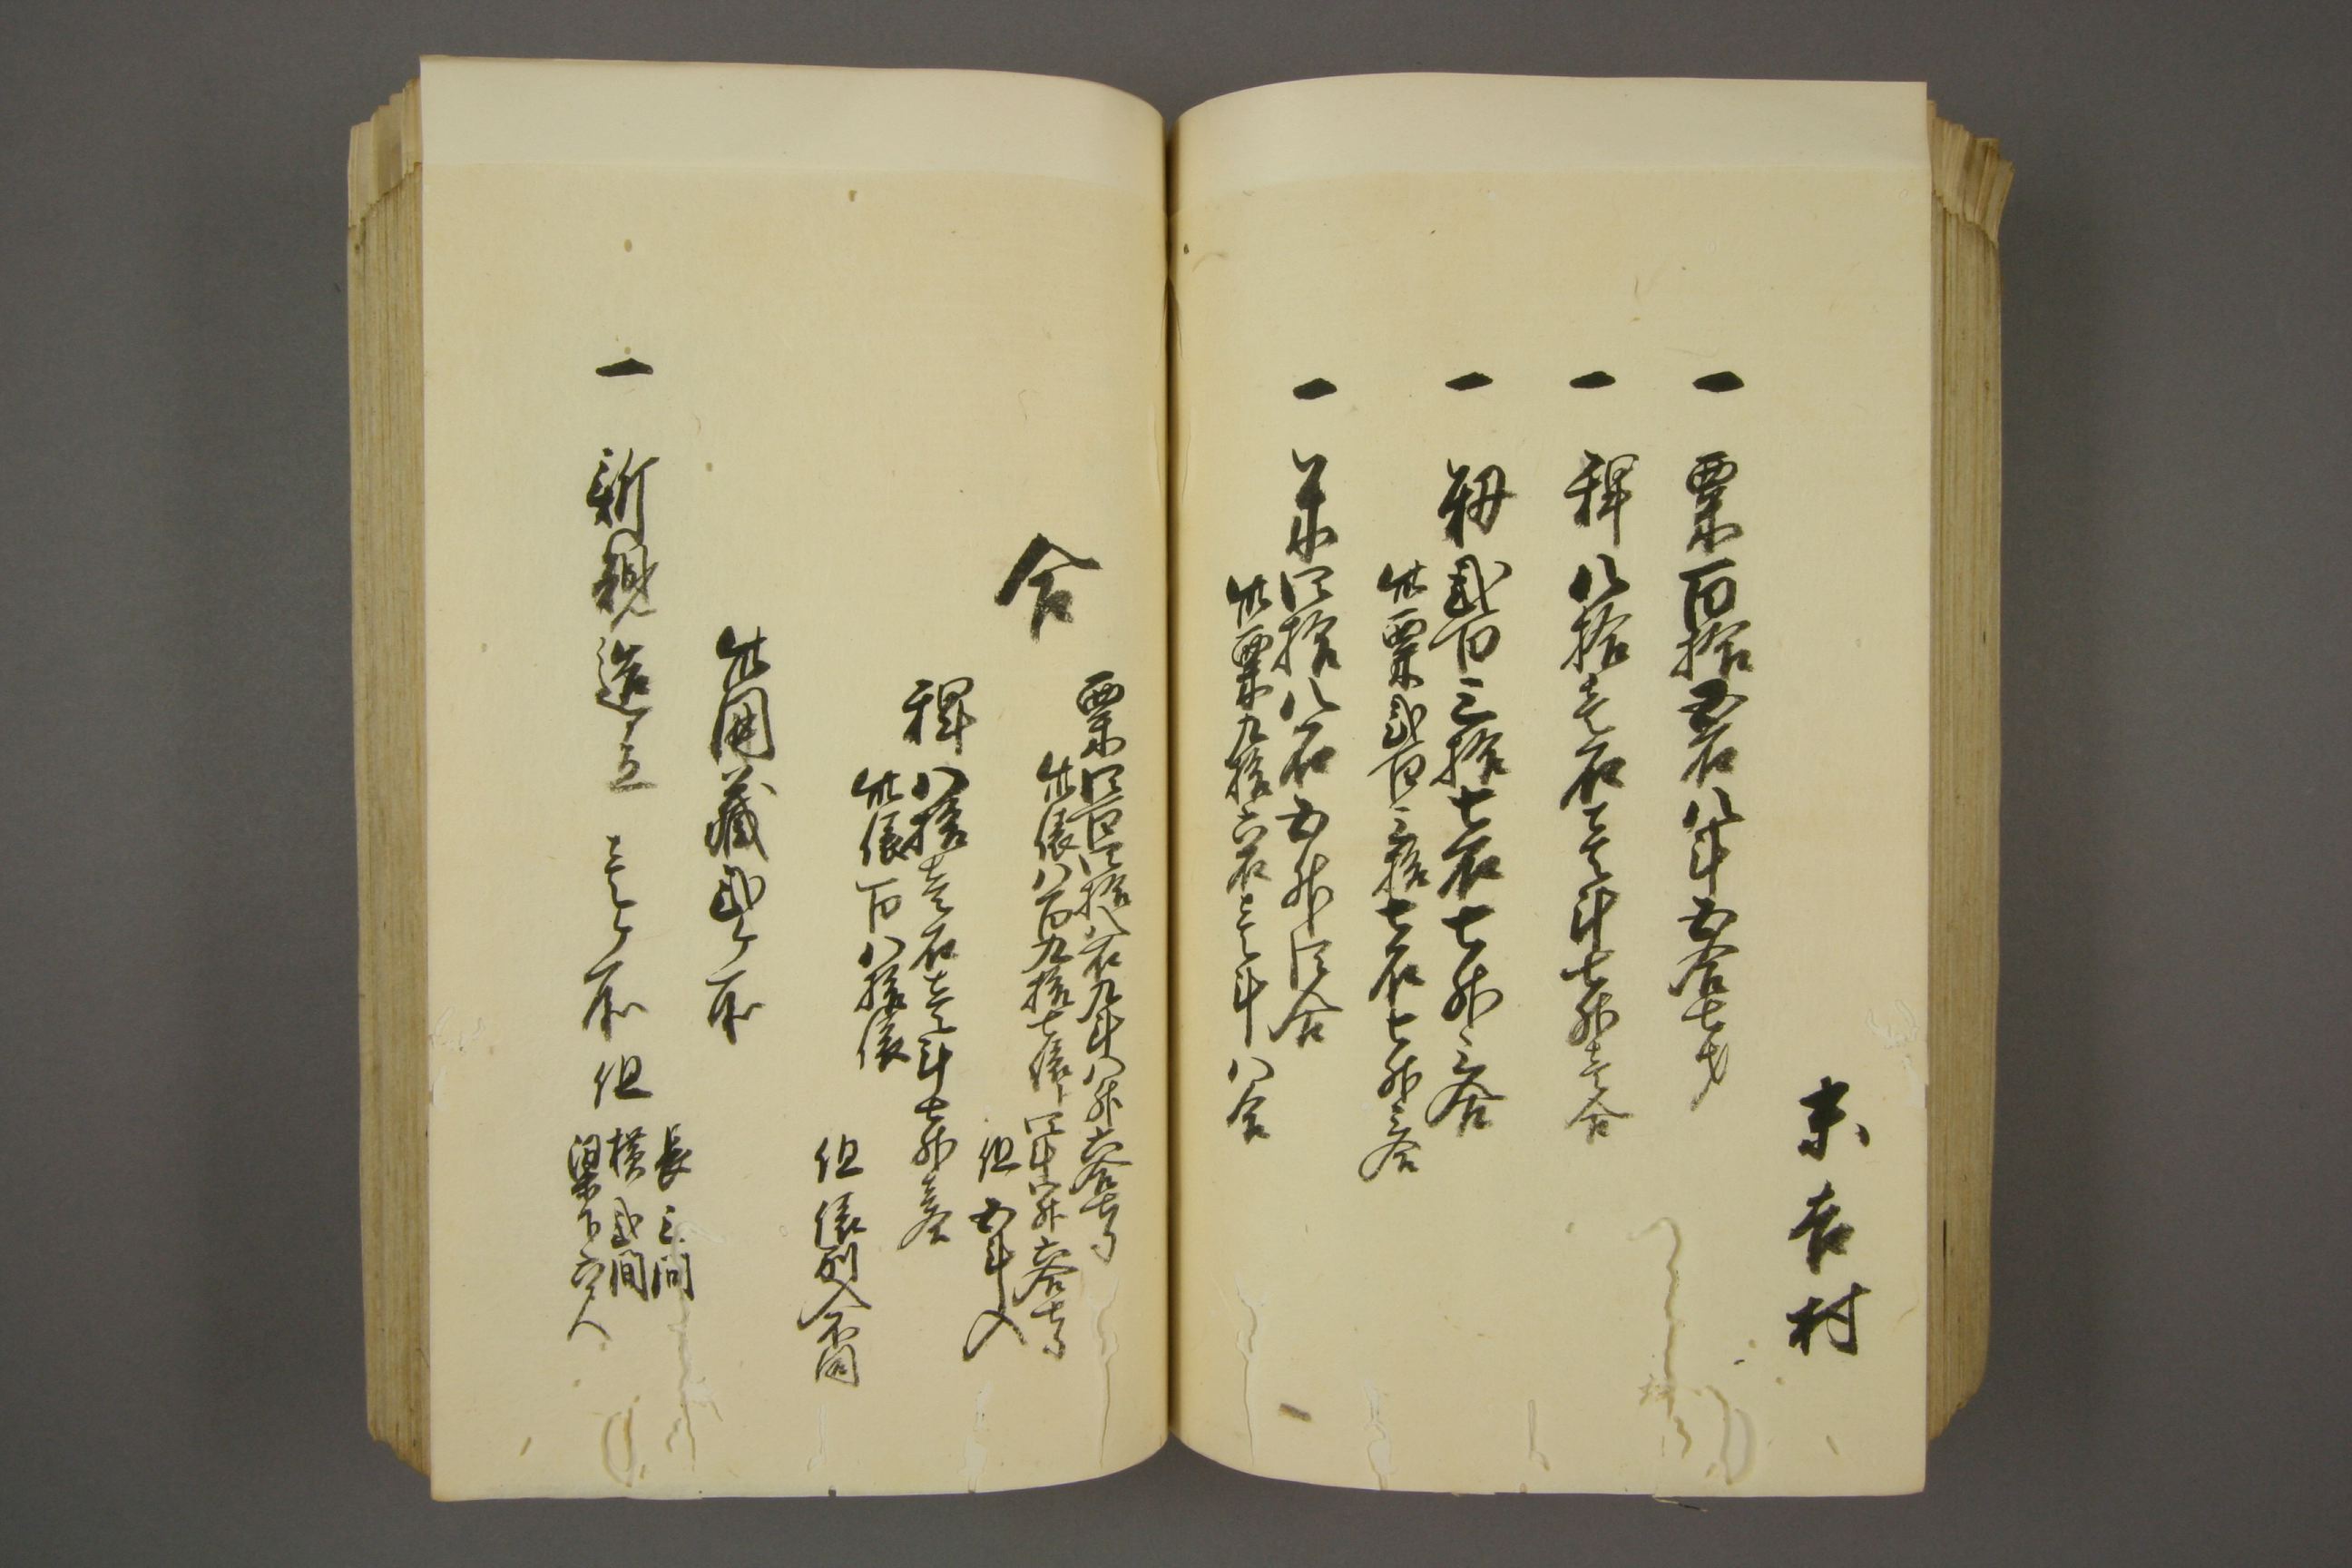 末吉村
一 粟百拾五石八斗五合七才
一 稗八拾壱石壱斗七升壱合
一 籾弐百三拾七石七升三合
此粟弐百三拾七石七升三合
一 米四拾八石五升四合
此粟九拾六石壱斗八合
合
粟四百四拾八石九斗八升六合七才
此俵八百九拾七俵四斗八升六合七才
但五斗入
稗八拾壱石壱斗七升壱合
此俵百八拾俵
但俵別入不同
此囲蔵弐ヶ所
一 新規造立 壱ヶ所 但
長三間
横弐間
梁下